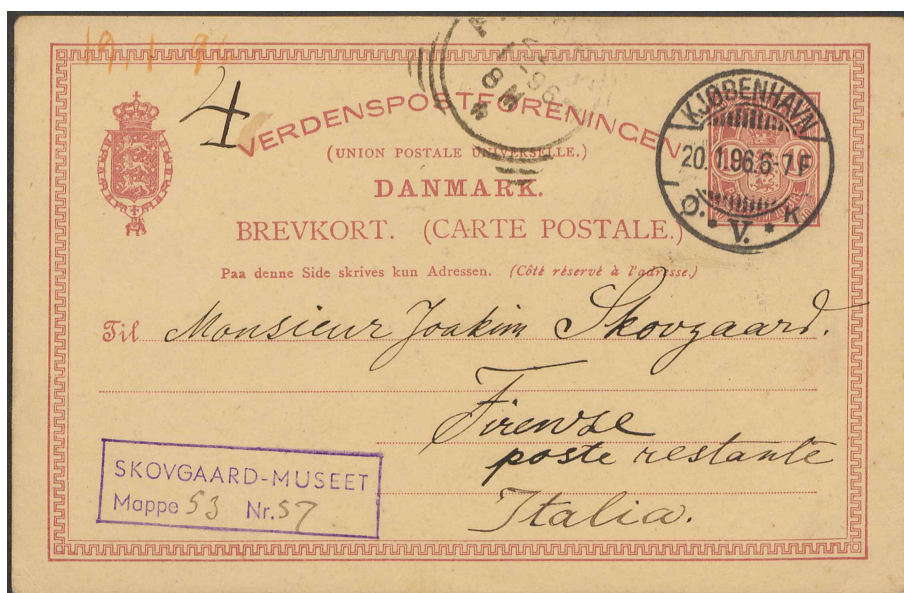 19 1 96
4
VERDENSPOSTFORENINGEN
(UNION POSTALE UNIVERSELLE.)
DANMARK.
BREVKORT. (CARTE POSTALE.)
Paa denne Side skrives kun Adressen. (Côté réservé à l'adresse.)
KJØBENHAVN
20.1.96.6-7F
Ø. * V. * K
96
8M
Til Monsieur Joakim Skovgaard.
Firenze
poste restante
Italia.
SKOVGAARD-MUSEET
Mappe 53 Nr. 57